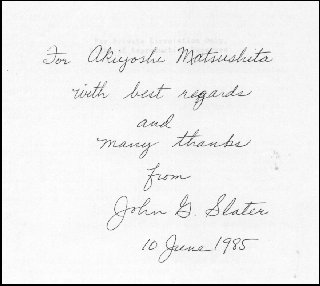 For Akiyoshi Matsushita
with best regards
and
many thanks
from
John G. Slater
10 June 1985